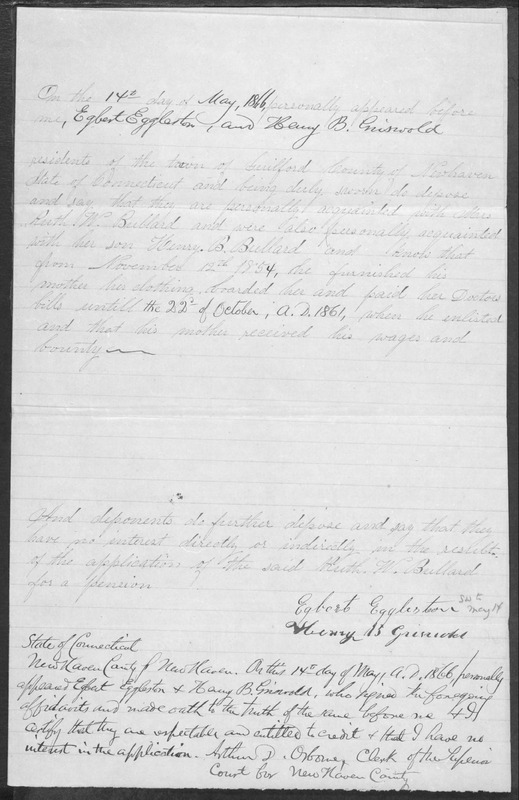 On the 14th day of May, 1866, personally appeared before
me, Egbert Eggleston, and Henry B. Griswold
residents of the town of Guilford County of Newhaven
State of Connecticut and being duly sworn do depose
and say that they are personally acquainted with Mrs
Ruth W. Bullard and were also personally acquainted
with her son Henry. B. Bullard and know that
from November 12th 1854, he furnished his
mother her clothing, boarded her and paid her Doctors
bills untill the 22d of October, A.D. 1861, when he enlisted
and that his mother received his wages and
bounty
And deponents do further depose and say that they
have no interest directly or indirectly in the results
of the application of the said Ruth. W. Bullard
for a pension
Egbert Eggleston
May 14
Henry B Griswold
State of Connecticut
New Haven County of New Haven. On this 14th day of May, A.D. 1866 personally
appeared Egbert Eggleston & Henry B. Griswold, who signed the foregoing
affidavits and made oath to the truth of the same before me & I
certify that they are respectable and entitled to credit & that I have no
interest in the application. Arthur D. Osborne, Clerk of the Superior
Court for New Haven County